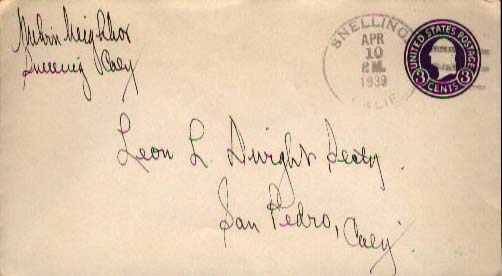 Melvin Neighbor
Snelling Calif
SNELLING
APR
10
P.M.
1939
CALIF.
UNITED STATES POSTAGE
3 CENTS 3
Leon L. Dwight Secty.
San Pedro, Calif